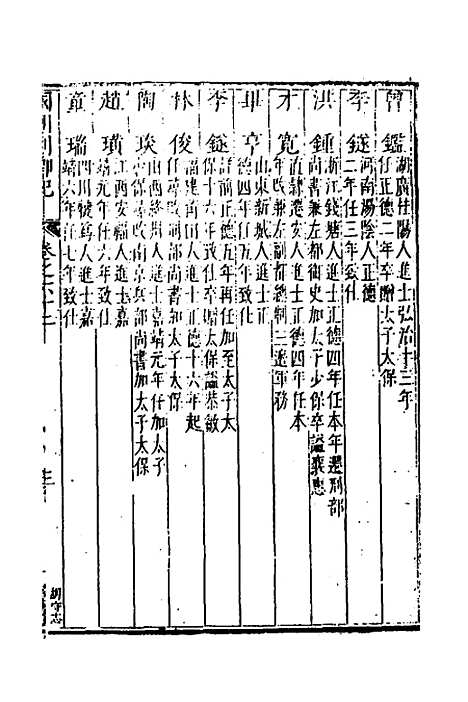 曾鑑湖廣桂陽人進士弘治十三年
任正德二年卒贈太子太保
李鐩河南湯陰人正德
二年任三年致仕
洪鍾浙江錢塘人進士正德四年任本年還刑部
尚書兼左都御史加太子少保卒諡襄惠
才寬直隸遷安人進士正德四年任本
年改兼左副都總制三邊軍務
畢亨山東新城人進士正
德四年任五年致仕
李鐩詳前正德五年再任加至太子太
保十六年致仕卒贈太保諡恭敏
林俊福建莆田人進士正德十六年起
任尋改刑部尚書加太子太保
陶琰山西絳州人進士嘉靖元年任加太子
太保尋改南京兵部尚書加太子太保
趙璜江西安福人進士嘉
靖元年任六年致仕
童瑞四川犍爲人進士嘉
靖六年任七年致仕
國朝列卿紀
卷之六十二
胡守志